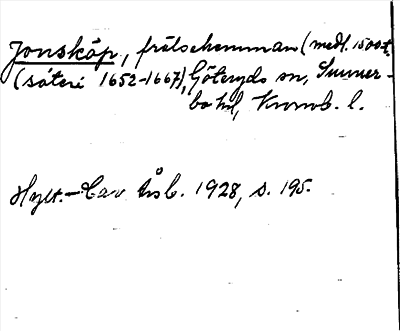 Jonsköp, frälsehemman (medl. 1500 t.
(säteri 1652-1667), Göteryds sn, Sunner-
bo hd, Kronob. l.
Hylt.-Cav. Årsb. 1928, s. 195.